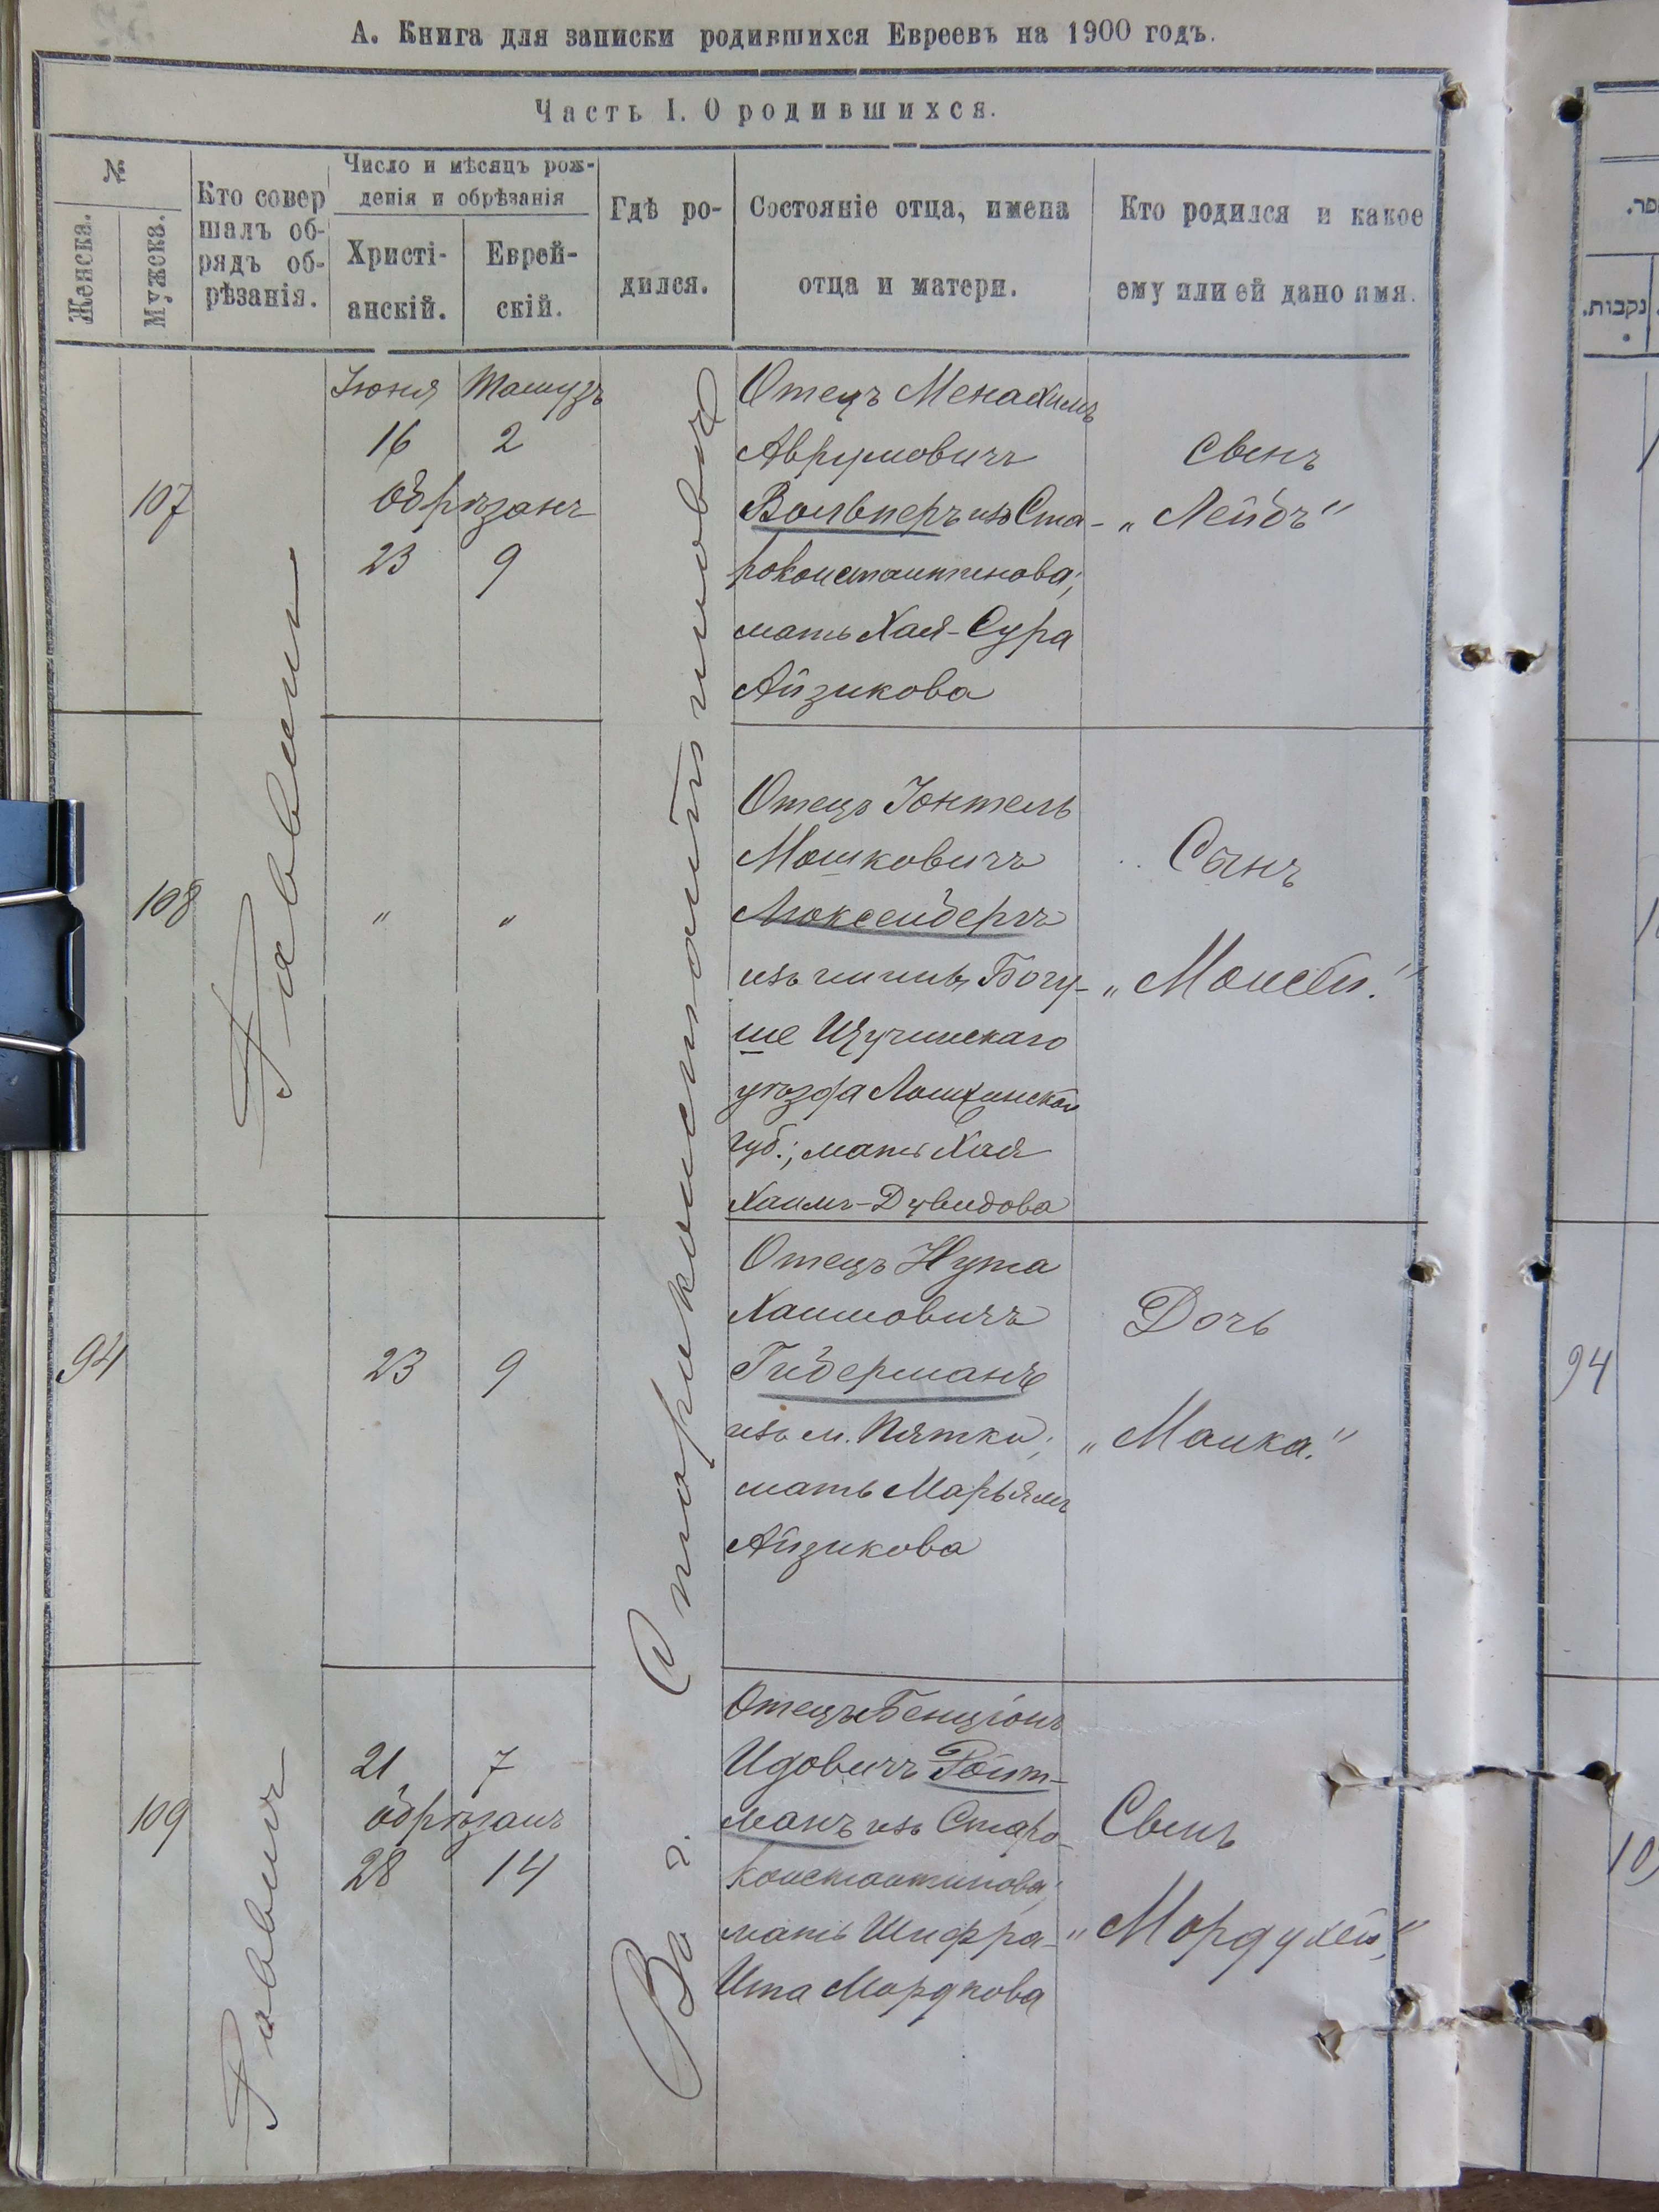 А. Книга для записки родившихся Евреевъ на 1900 годъ.
Часть I. О родившихся.
№
Женска.
Мужска.
Кто совер
шалъ об-
рядъ об-
рѣзанія.
Число и мѣсяцъ рож-
денія и обрѣзанія
Христі-
анскій.
Еврей-
скій.
Гдѣ ро-
дился.
Состояніе отца, имена
отца и матери.
Кто родился и какое
ему или ей дано имя.
נקבות.
Іюня Тамузъ
16 2
107
обрѣзанъ
23 9
Отецъ Менахимъ
Аврумовичъ
Вольвперъ изъ Ста-
роконстантинова;
мать Хая-Сура
Айзикова
Сынъ
„Лейбъ"
Раввинъ
Въ г. Староконстантиновѣ
108
" "
Отецъ Іонтель
Мошковичъ
Люксенбергъ
изъ гмины Богу-
ше Щучинскаго
уѣзда Ломжинской
губ.; мать Хая
Хаимъ-Дувидова
Сынъ
„Моисей."
94
23 9
Отецъ Нута
Хаимовичъ
Гиберманъ
изъ м. Пятки;
мать Марьямъ
Айзикова
Дочь
„Малка."
94
109
21 7
обрѣзанъ
28 14
Отецъ Бенціонъ
Идовичъ Ройт-
манъ изъ Старо-
константинова;
мать Шифра-
Ита Мордкова
Сынъ
„Мордухей"
Раввинъ
10